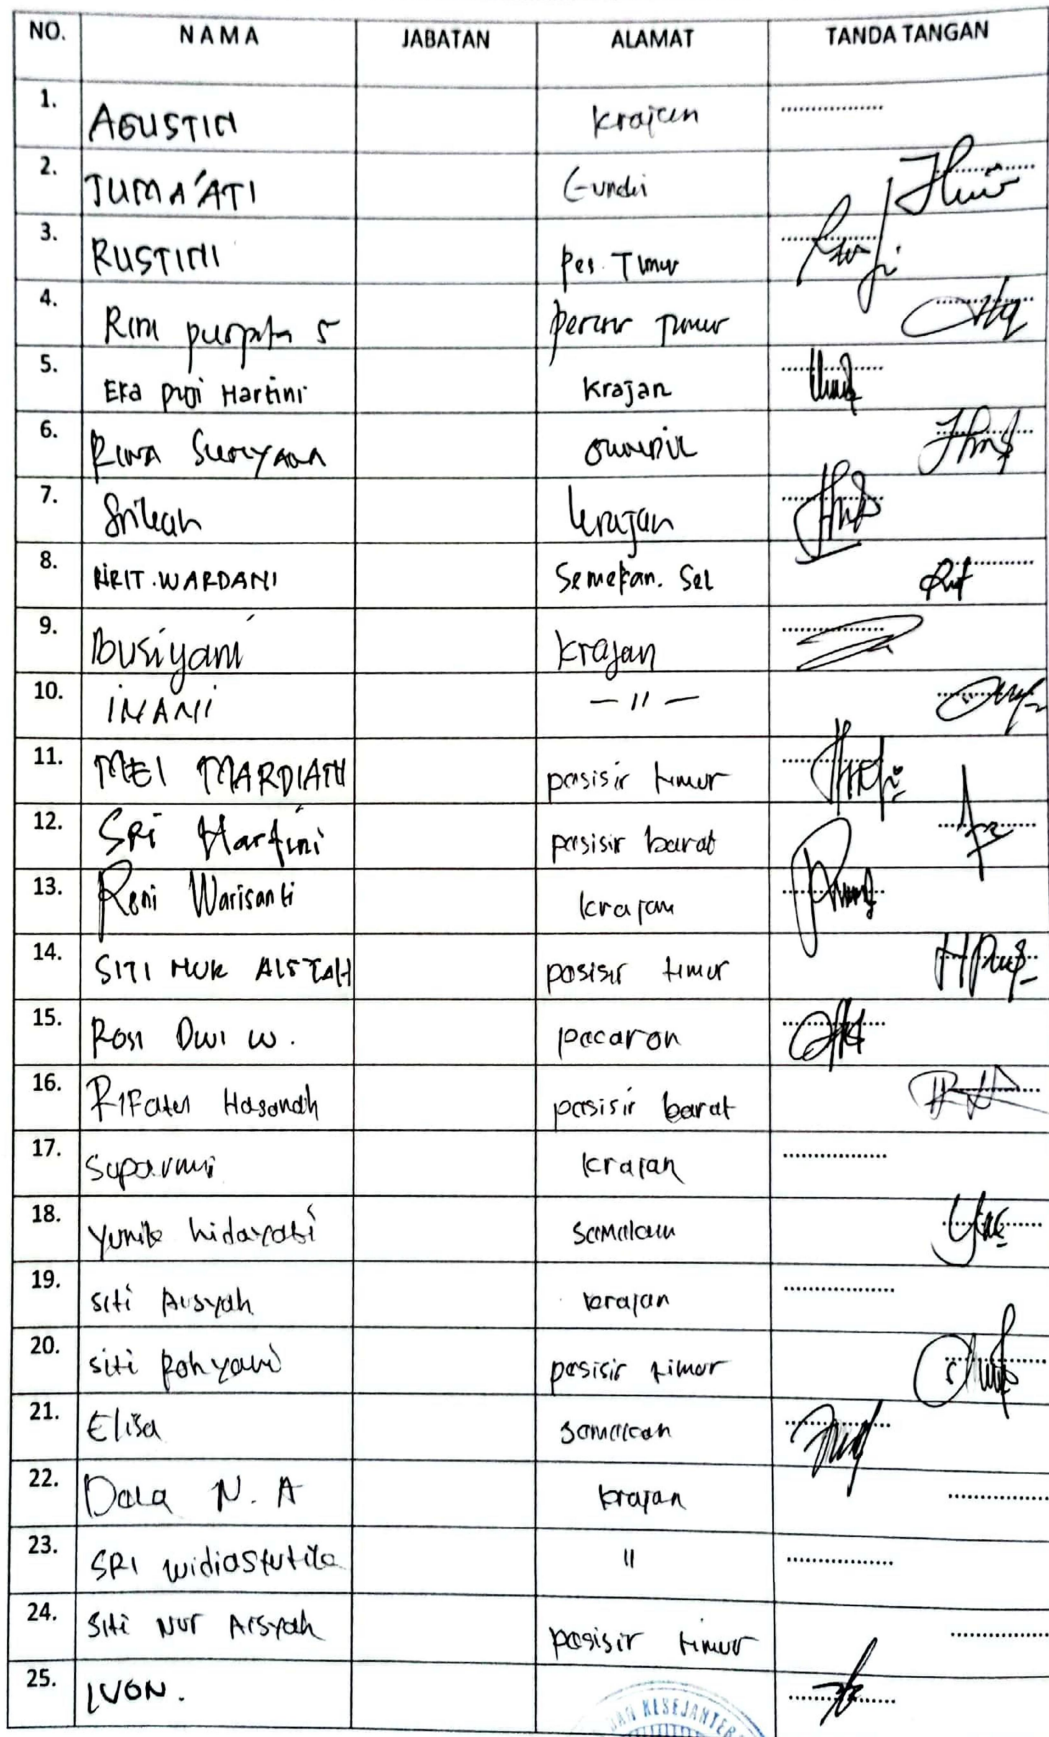 NO. NAMA JABATAN ALAMAT TANDA TANGAN
1. AGUSTIN Krajan
2. JUMA'ATI Gundi
3. RUSTINI Pes. Timur
4. Rini puspita S pesisir Timur
5. Eka puji Hartini Krajan
6. RINA Suryana
7. Srikah krajan
8. WARDANI Semekan. Sel
9. Busiyani Krajan
10. INANI — 11 —
11. MEI MARDIATI pasisir timur
12. SRi Hartini pasisir barat
13. Reni Warisanti krajan
14. SITI NUR AISYAH pasisir timur
15. Rosi Dwi W. pacaron
16. Rifatul Hasanah pasisir barat
17. Suparmi krajan
18. Yunita hidayati samakan
19. Siti Aisyah krajan
20. siti Rohyani pasisir timur
21. Elisa samakan
22. N. A krajan
23. SRI 11
24. Siti Nur Aisyah pasisir timur
25. IVON.
DAN KESEJAHTER